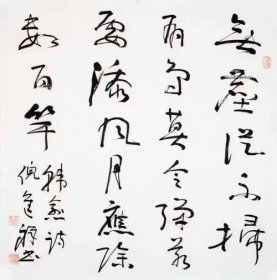 無塵從不掃
有鳥莫令彈若
要添風月應除
數百竿
韓愈詩
倪
書